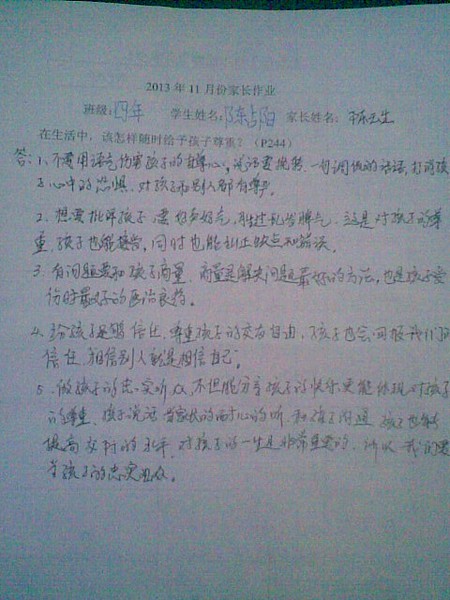 2013年11月份家长作业
班级:四年 学生姓名:陈占阳 家长姓名:
在生活中，该怎样随时给予孩子尊重？（P244）
答: 1、不要用语气伤害孩子的自尊心，说话要婉转、一句调低的话语,打消孩
子心中的恐惧、对孩子和别人都有尊严。
2. 想要批评孩子 要好声好气,胜过乱发脾气、这是对孩子的尊
重,孩子也能接受,同时也能纠正缺点和错误。
3. 有问题要和孩子商量、商量是解决问题最好的方法,也是孩子受
伤时最好的医治良药。
4. 给孩子足够信任、尊重孩子的交友自由,孩子也会回报我们的
信任,相信别人就是相信自己"。
5. 做孩子的忠实听众,不但能分享孩子的快乐更能体现对孩子
的尊重、孩子说话 当家长的耐心的听、和孩子沟通 孩子也能
提高交村的水平,对孩子的一生是非常重要的,所以我们要
当孩子的忠实听众。